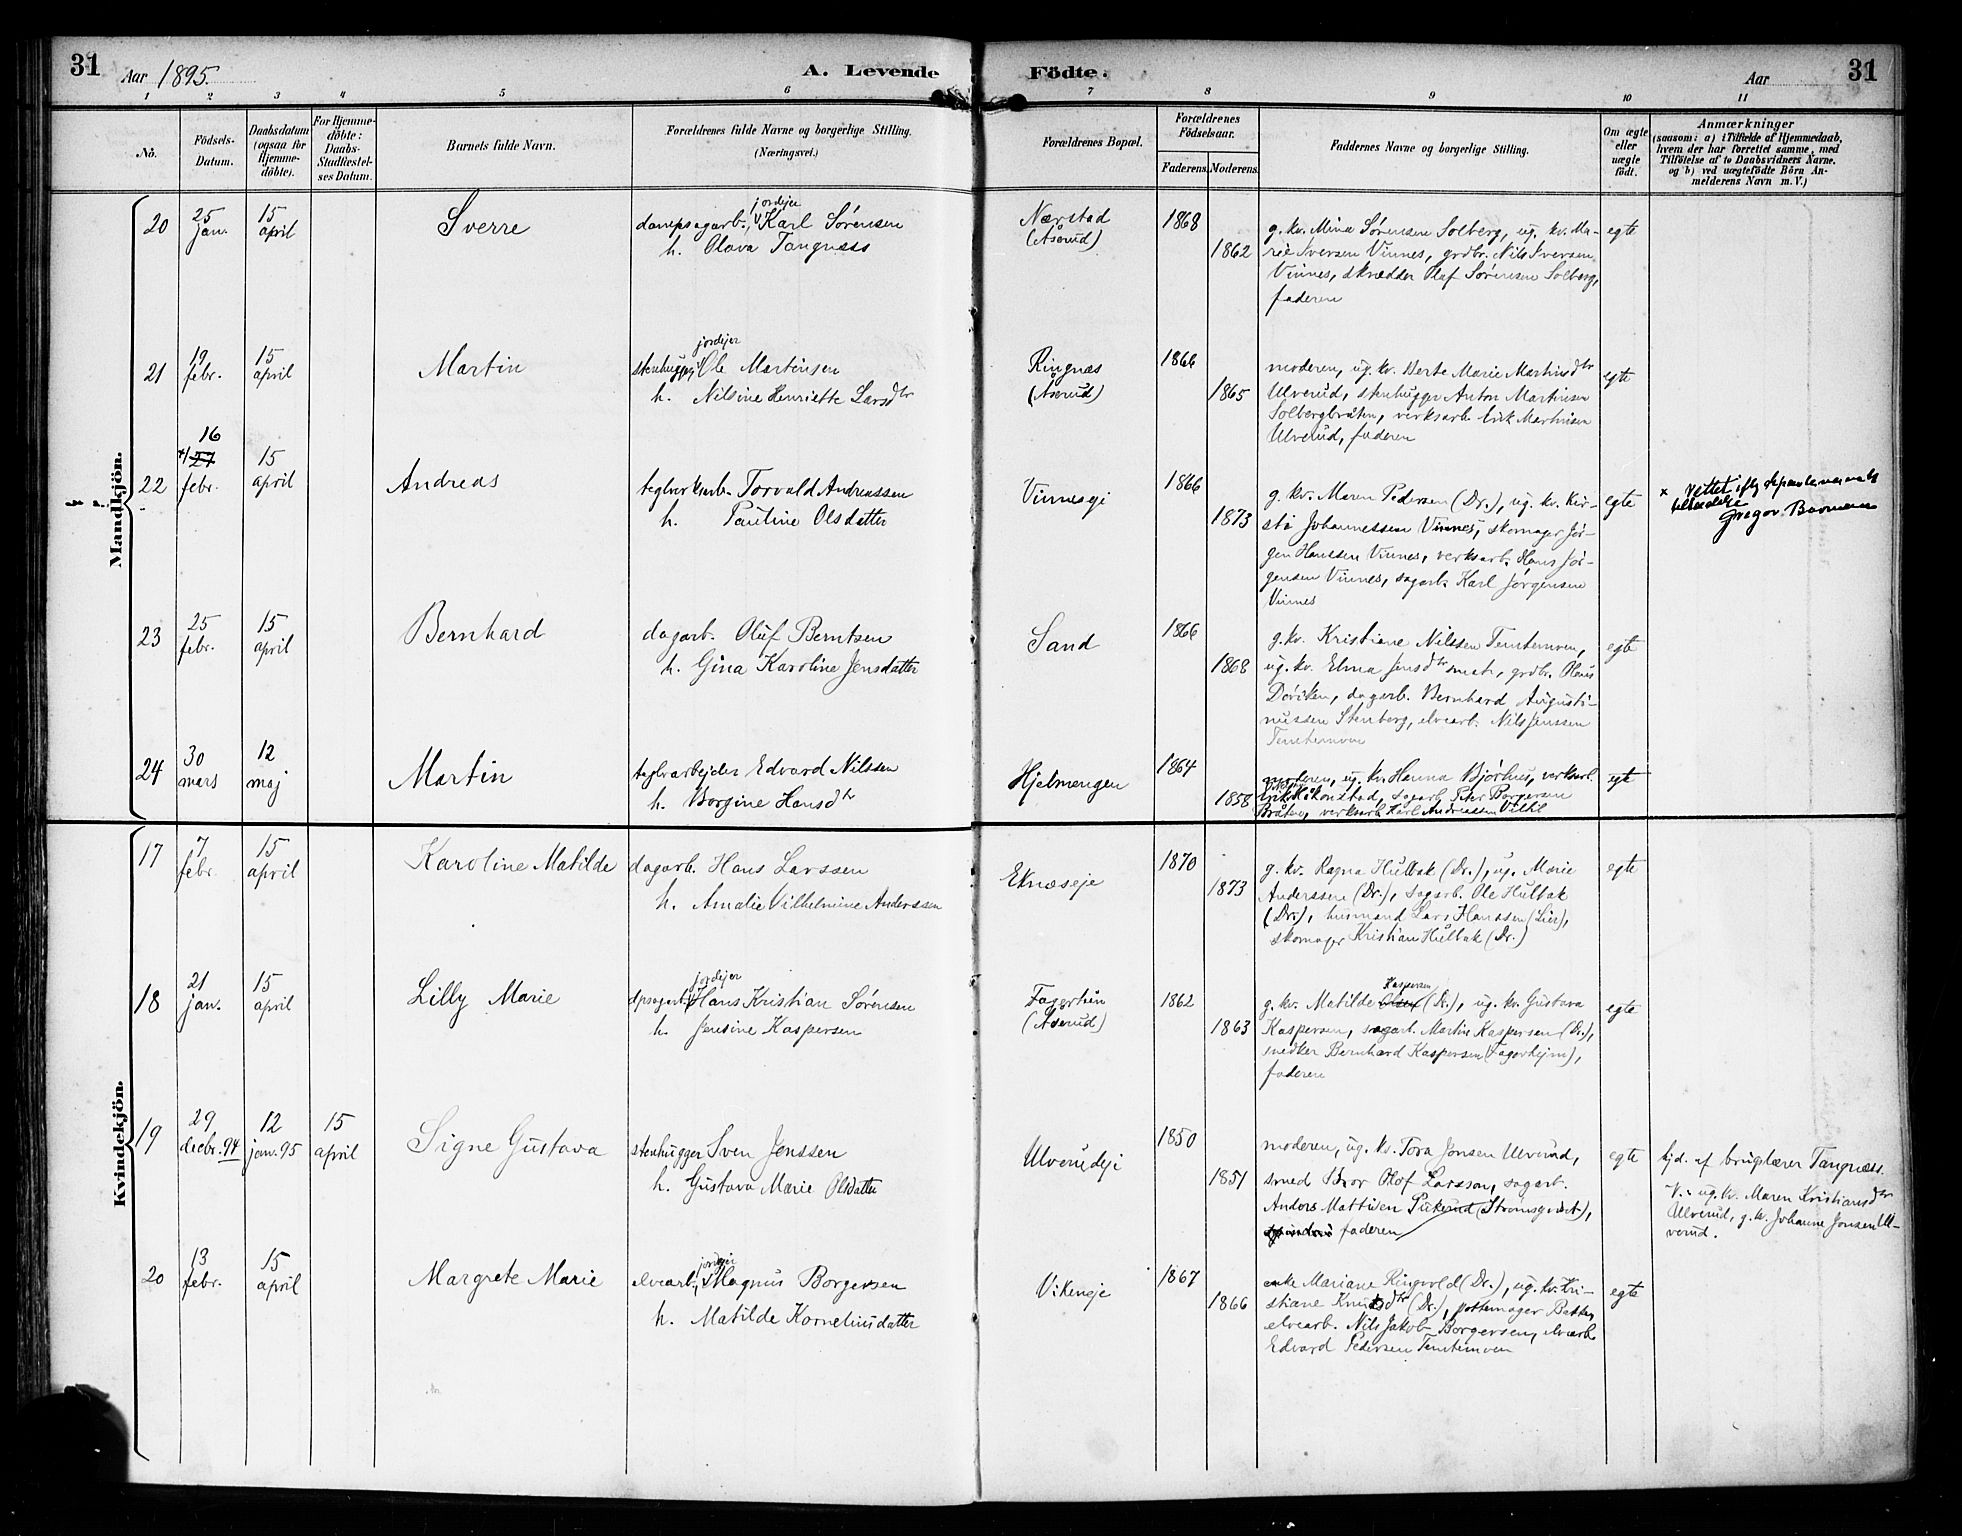 31
Aar 1895.
A. Levende
Födte.
Aar
31
1 2 3 4 5 6 7 8 9 10 11
No.
Födsels-
Datum.
Daabsdatum
(ogsaa for
Hjemme-
döbte).
For Hjemme-
döbte:
Daabs-
Stadfæstel-
ses Datum.
Barnets fulde Navn.
Forældrenes fulde Navne og borgerlige Stilling.
(Næringsvei.)
Forældrenes Bopæl.
Forældrenes
Födselsaar.
Faderens. Moderens.
Faddernes Navne og borgerlige Stilling.
Om ægte
eller
uægte
født.
Anmærkninger
(saasom: a) i Tilfælde af Hjemmedaab,
hvem der har forrettet samme, med
Tilføielse af to Daabsvidners Navne.
og b) ved uægtefödte Börn An-
melderens Navn m. V.)
Mandkjön.
20
25
jan.
15
april
Sverre
jordejer
dampsagarb. Karl Sørensen
h. Olava Tangnæss
Nærstad
(Åserud)
1868
1862
g. kv. Mina Sørensen Solberg, ug. kv. Ma-
rie Iversen Vinnes, grdbr. Nils Iversen
Vinnes, skrædder Olaf Sørensen Solberg,
faderen
egte
21
19
febr.
15
april
Martin
jordejer
stenhugger Ole Martinsen
h. Nilsine Henriette Larsdtr
Ringnæs
(Åserud)
1866
1865
moderen, ug. kv. Berte Marie Martinsdtr
Ulverud, stenhugger Anton Martinsen
Solbergbråten, verksarb. Erik Martinsen
Ulverud, faderen
egte
22
16
27
febr.
15
april
Andreas
teglverksarb. Torvald Andreassen
h. Pauline Olsdatter
Vinneseje
1866
1873
g. kv. Maren Pedersen (Dr.), ug. kv. Kir-
sti Johannessen Vinnes, skomager Jør-
gen Hanssen Vinnes, verksarb. Hans Jør-
gensen Vinnes, sagarb. Karl Jørgensen
Vinnes
egte
x rettet iflg departementets
Gregor
23
25
febr.
15
april
Bernhard
dagarb. Oluf Berntsen
h. Gina Karoline Jensdatter
Sand
1866
1868
g. kv. Kristiane Nilssen Temtemoen,
ug. kv. Elma Jensdtr smst., grdbr. Olaus
Döviken, dagarb. Bernhard Augusti-
nussen Stenberg, elvearb. Nils Jenssen
Temtemoen
egte
24
30
mars
12
maj
Martin
teglvarbejder Edvard Nilssen
h. Borgine Hansdtr
Hjelmengen
1864
1858
moderen, ug. kv. Hanna Bjørhus, verksarb.
Erik Håkonstad, sagarb. Peter Borgersen
Bråten, verksarb. Karl Andreassen
egte
Kvindekjön.
17
7
febr.
15
april
Karoline Matilde
dagarb. Hans Larssen
h. Amalie Vilhelmine Anderssen
Eknæseje
1870
1873
g. kv. Ragna Hulbak (Dr.), ug. Marie
Anderssen (Dr.), sagarb. Ole Hulbak
(Dr.), husmand Lars Hanssen (Lier),
skomager Kristian Hulbak (Dr.)
egte
18
21
jan.
15
april
Lilly Marie
jordejer
dpsagarb. Hans Kristian Sørensen
h. Jensine Kaspersen
(Åserud)
1862
1863
Kaspersen
g. kv. Matilde (Dr.), ug. kv. Gustava
Kaspersen, sagarb. Martin Kaspersen (Dr.),
snedker Bernhard Kaspersen (Fagerhejm),
faderen
egte
19
29
decbr. 94
12
jan. 95
15
april
Signe Gustava
stenhugger Sven Jenssen
h. Gustava Marie Olsdatter
Ulverudeje
1850
1851
moderen, ug. kv. Tora Jonsen Ulverud,
smed Bror Olof Larsson, sagarb.
Anders Mattisen Pukerud (Strømsgodset),
faderen
egte
hjd. af brugslærer Tangnæss.
V.: ug. kv. Maren Kristiansdtr
Ulverud, g. kv. Johanne Jonsen Ul-
verud.
20
13
febr.
15
april
Margrete Marie
jordejer
elvearb. Magnus Borgersen
h. Matilde Korneliusdatter
Vikeneje
1867
1866
enke Mariane Ringvold (Dr.), ug. kv. Kri-
stiane Knutsdtr (Dr.), pottemager Bakke,
elvearb. Nils Jakob Borgersen, elvearb.
Edvard Pedersen Temtemoen
egte